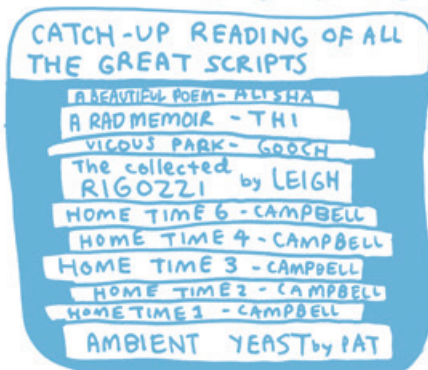 CATCH-UP READING OF ALL
THE GREAT SCRIPTS
A BEAUTIFUL POEM - ALISHA
A RAD MEMOIR - THI
VICOUS PARK - GOOCH
The collected
RIGOZZI by LEIGH
HOME TIME 6 - CAMPBELL
HOME TIME 4 - CAMPBELL
HOME TIME 3 - CAMPBELL
HOME TIME 2 - CAMPBELL
HOME TIME 1 - CAMPBELL
AMBIENT YEAST by PAT